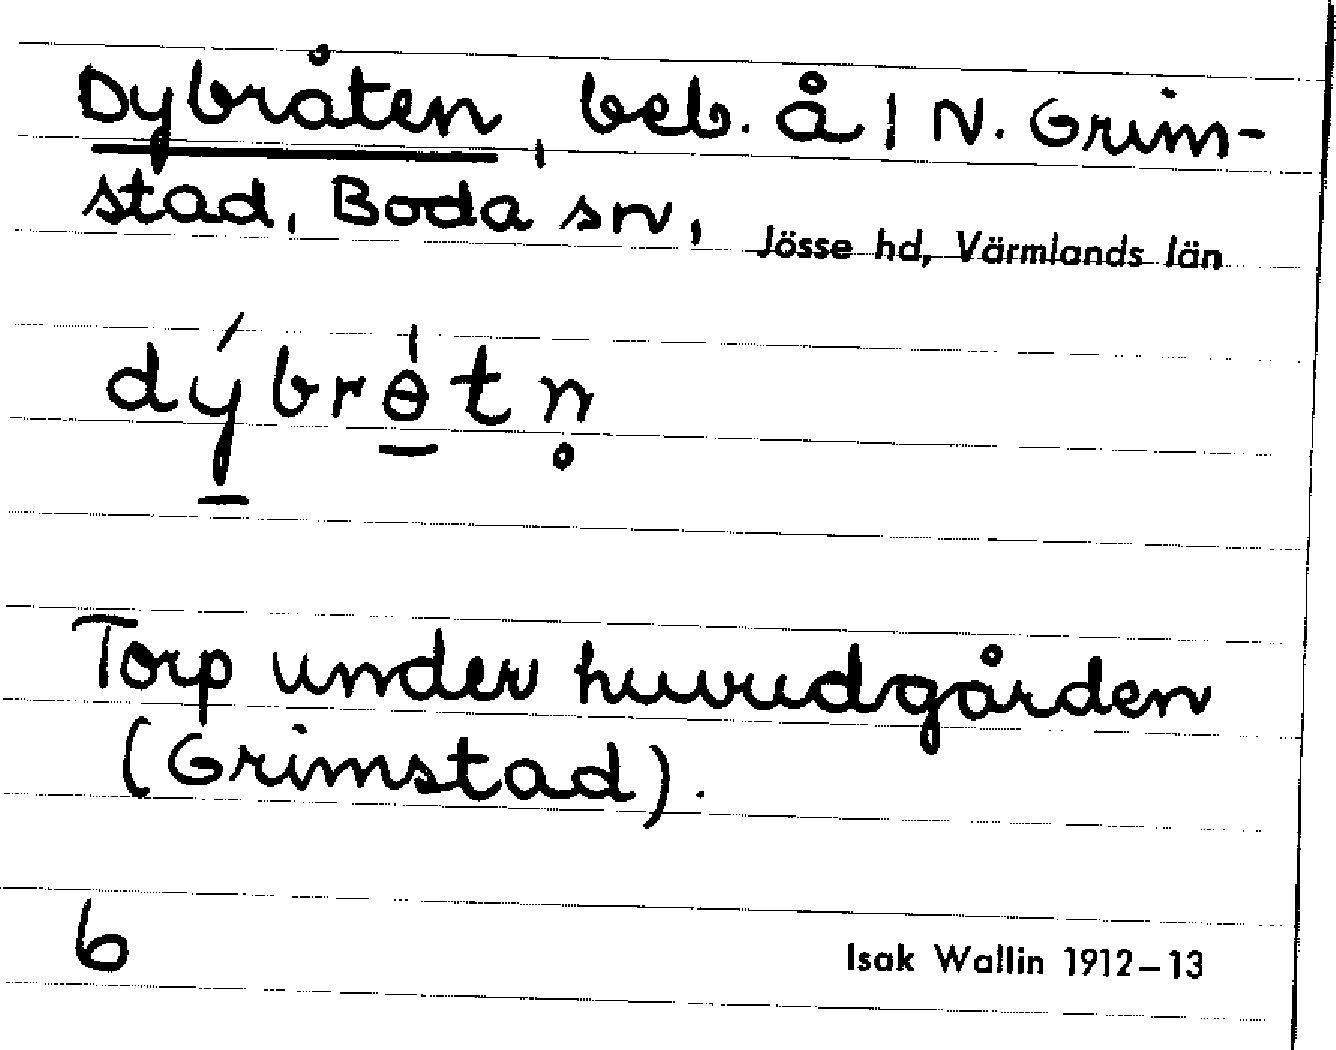 Dybråten, beb. å 1 N. Grim-
stad, Boda sn, Jösse hd, Värmlands län
dýbrɵ̠̍tn̥
Torp under huvudgården
(Grimstad).
6
Isak Wallin 1912–13